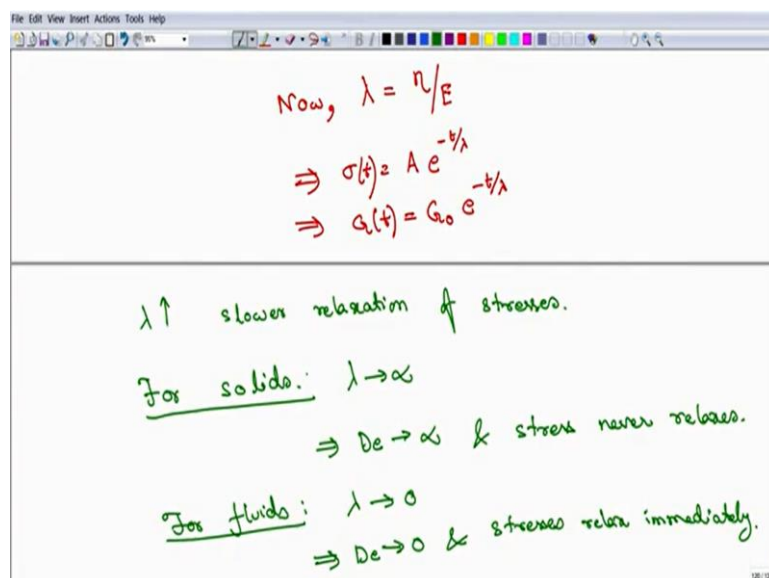 File Edit View Insert Actions Tools Help
Now, λ = η/E
⇒ σ(t) = A e^{-t/λ}
⇒ G(t) = G₀ e^{-t/λ}
λ↑ slower relaxation of stresses.
For solids: λ → ∝
⇒ De → ∝ & stress never relaxes.
For fluids: λ → 0
⇒ De → 0 & stresses relax immediately.